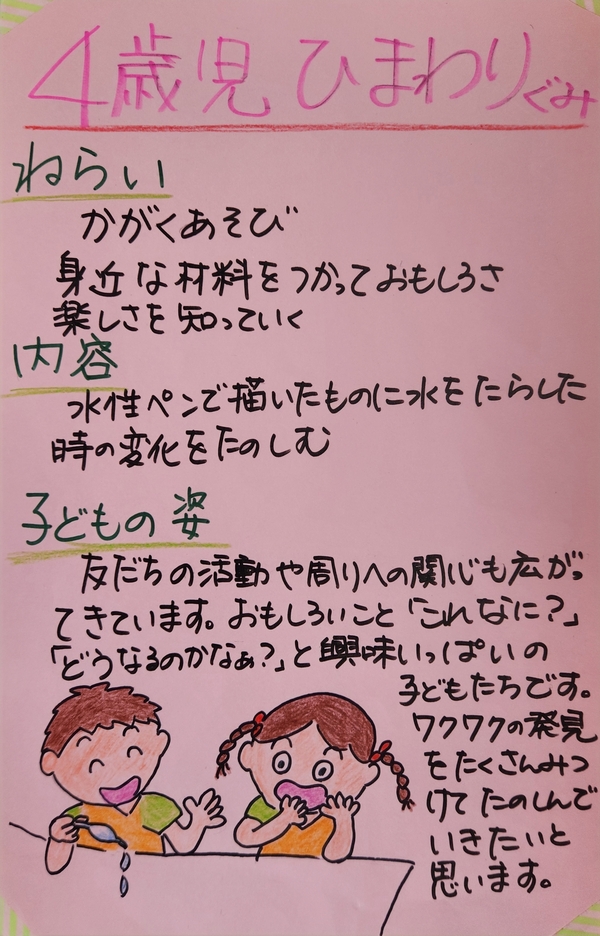 4歳児 ひまわりぐみ
ねらい
かがくあそび
身近な材料をつかっておもしろさ
楽しさを知っていく
内容
水性ペンで描いたものに水をたらした
時の変化をたのしむ
子どもの姿
友だちの活動や周りへの関心も広がっ
てきています。おもしろいこと「これなに？」
「どうなるのかなぁ？」と興味いっぱいの
子どもたちです。
ワクワクの発見
をたくさんみつ
けてたのしんで
いきたいと
思います。